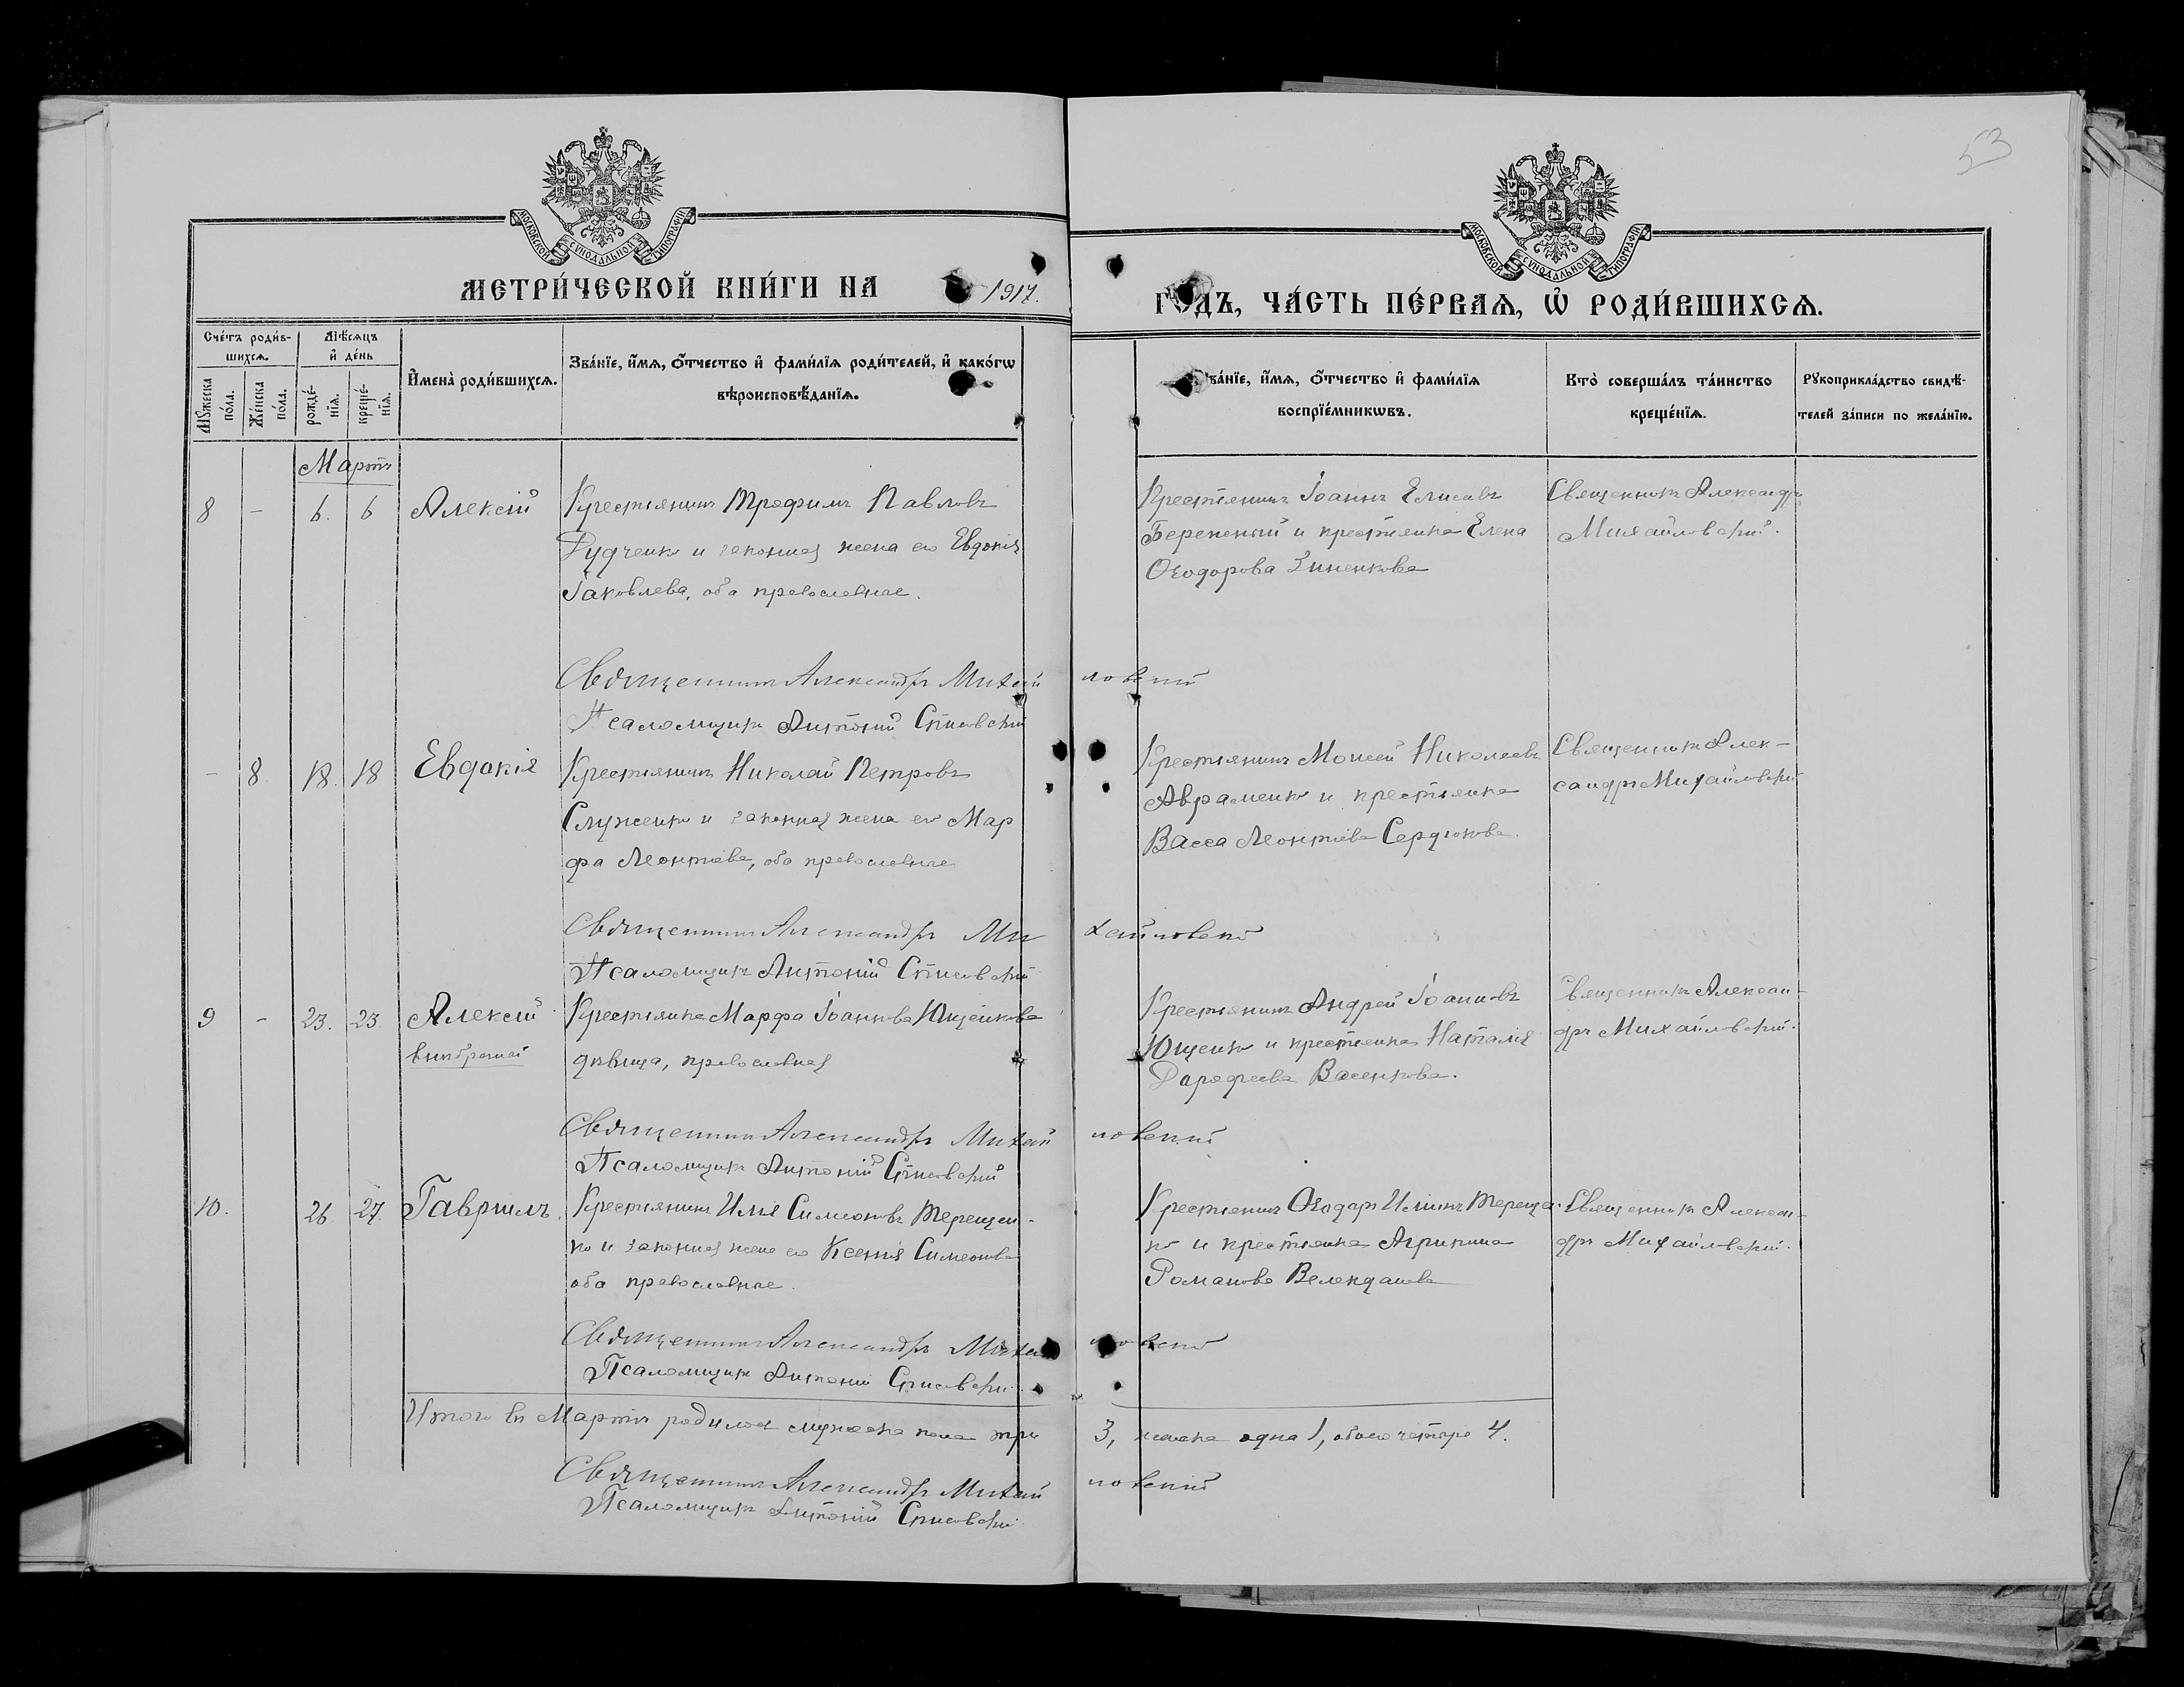 53
МОСКОВСКОЙ СУНОДАЛЬНОЙ ТИПОГРАФІИ
МОСКОВСКОЙ СУНОДАЛЬНОЙ ТИПОГРАФІИ
МЕТРИ́ЧЕСКОЙ КНИ́ГИ НА 1917.
ГОДЪ, ЧА́СТЬ ПЕ́РВАѦ, Ѡ҆ РОДИ́ВШИХСѦ.
Сче́тъ роди́в-
шихсѧ.
Мꙋ́жеска
по́ла.
Же́нска
по́ла.
Мѣ́сѧцъ
и҆ де́нь
рожде́-
нїѧ.
креще́-
нїѧ.
И҆мена̀ роди́вшихсѧ.
Зва́нїе, и҆́мѧ, ѻ҆́тчество и҆ фами́лїѧ роди́телей, и҆ како́гѡ
вѣроисповѣ́данїѧ.
Зва́нїе, и҆́мѧ, ѻ҆́тчество и҆ фами́лїѧ
воспрїе́мникѡвъ.
Кто̀ соверша́лъ та́инство
креще́нїѧ.
Рꙋкоприкла́дство свидѣ́-
телей за́писи по жела́нїю.
Мартъ
8 - 6. 6 Алексій
Крестьянинъ Трофимъ Павловъ
Рудченко и законная жена его Евдокія
Іаковлева, оба православные.
Крестьянинъ Іоаннъ Елисеевъ
и крестьянка Елена
Ѳеодорова Зиненкова
Священникъ Александръ
Михайловскій.
Священникъ Александръ Михайловскій
Псаломщикъ Антоній
- 8. 18. 18 Евдокія
Крестьянинъ Николай Петровъ
Служенко и законная жена его Мар
фа Леонтіева, оба православные
Крестьянинъ Моисей Николаевъ
Авраменко и крестьянка
Васса Леонтіева Сердюкова.
Священникъ Алек-
сандръ Михайловскій
Священникъ Александръ Михайловскій
Псаломщикъ Антоній
9 - 23. 23. Алексій
внѣбрачный
Крестьянка Марфа Іоаннова Ющенкова
дѣвица, православная
Крестьянинъ Андрей Іоанновъ
Ющенко и крестьянка Наталія
Дорофеева Васенкова.
Священникъ Алексан-
дръ Михайловскій.
Священникъ Александръ Михайловскій
Псаломщикъ Антоній
10. 26 27. Гавріилъ.
Крестьянинъ Илья Симеоновъ Терещен-
ко и законная жена его Ксенія Симеонова
оба православные.
Крестьянинъ Ѳеодоръ Ильинъ Терещен
ко и крестьянка Агрипина
Романова
Священникъ Алексан-
дръ Михайловскій.
Священникъ Александръ Михайловскій
Псаломщикъ Антоній
Итого въ Мартѣ родилось мужеска пола три 3, женска одна 1, обоего четыре 4.
Священникъ Александръ Михайловскій
Псаломщикъ Антоній